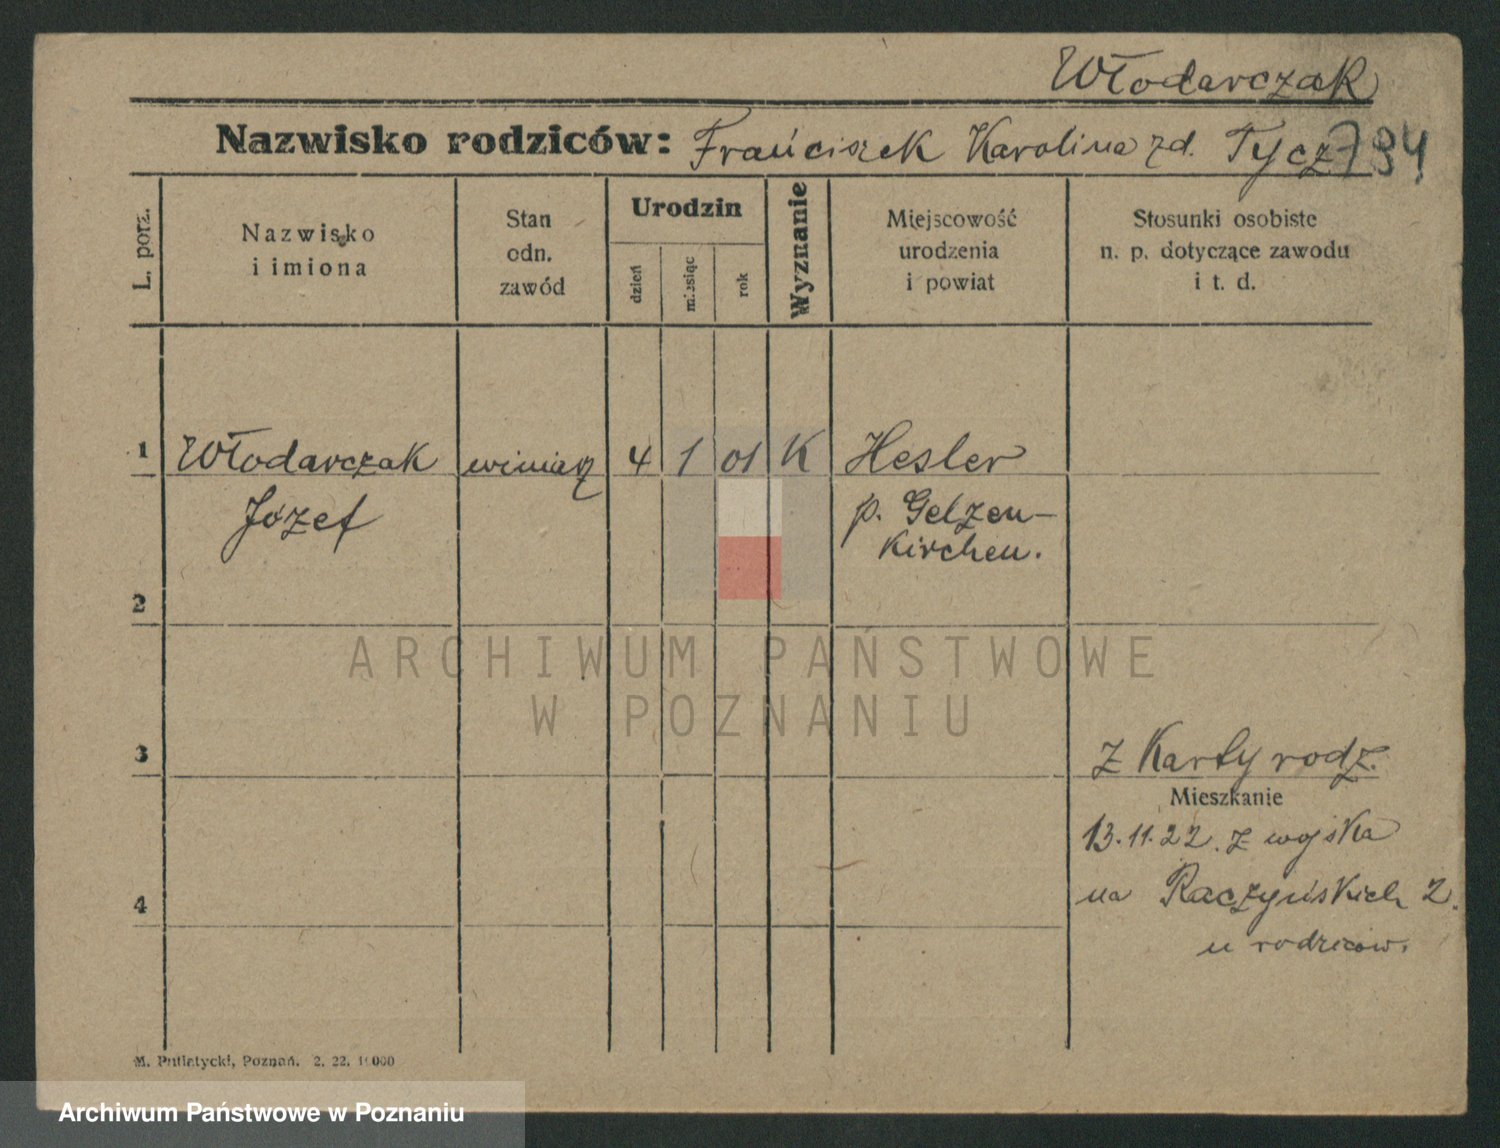 Włodarczak
Nazwisko rodziców: Frańciszek Karolina zd. Tycz 794
L. porz.
Nazwisko
i imiona
Stan
odn.
zawód
Urodzin
dzień
miesiąc
rok
Wyznanie
Miejscowość
urodzenia
i powiat
Stosunki osobiste
n. p. dotyczące zawodu
i t. d.
1 Włodarczak winiarz 4 1 01 K Hesler
Józef p. Gelzen-
kirchen.
2
ARCHIWUM PAŃSTWOWE
W POZNANIU
3 z Karty rodz.
Mieszkanie
13.11.22. z wojska
4 na Raczyńskich 2.
u rodziców.
M. Putiatycki, Poznań. 2. 22. 10000
Archiwum Państwowe w Poznaniu